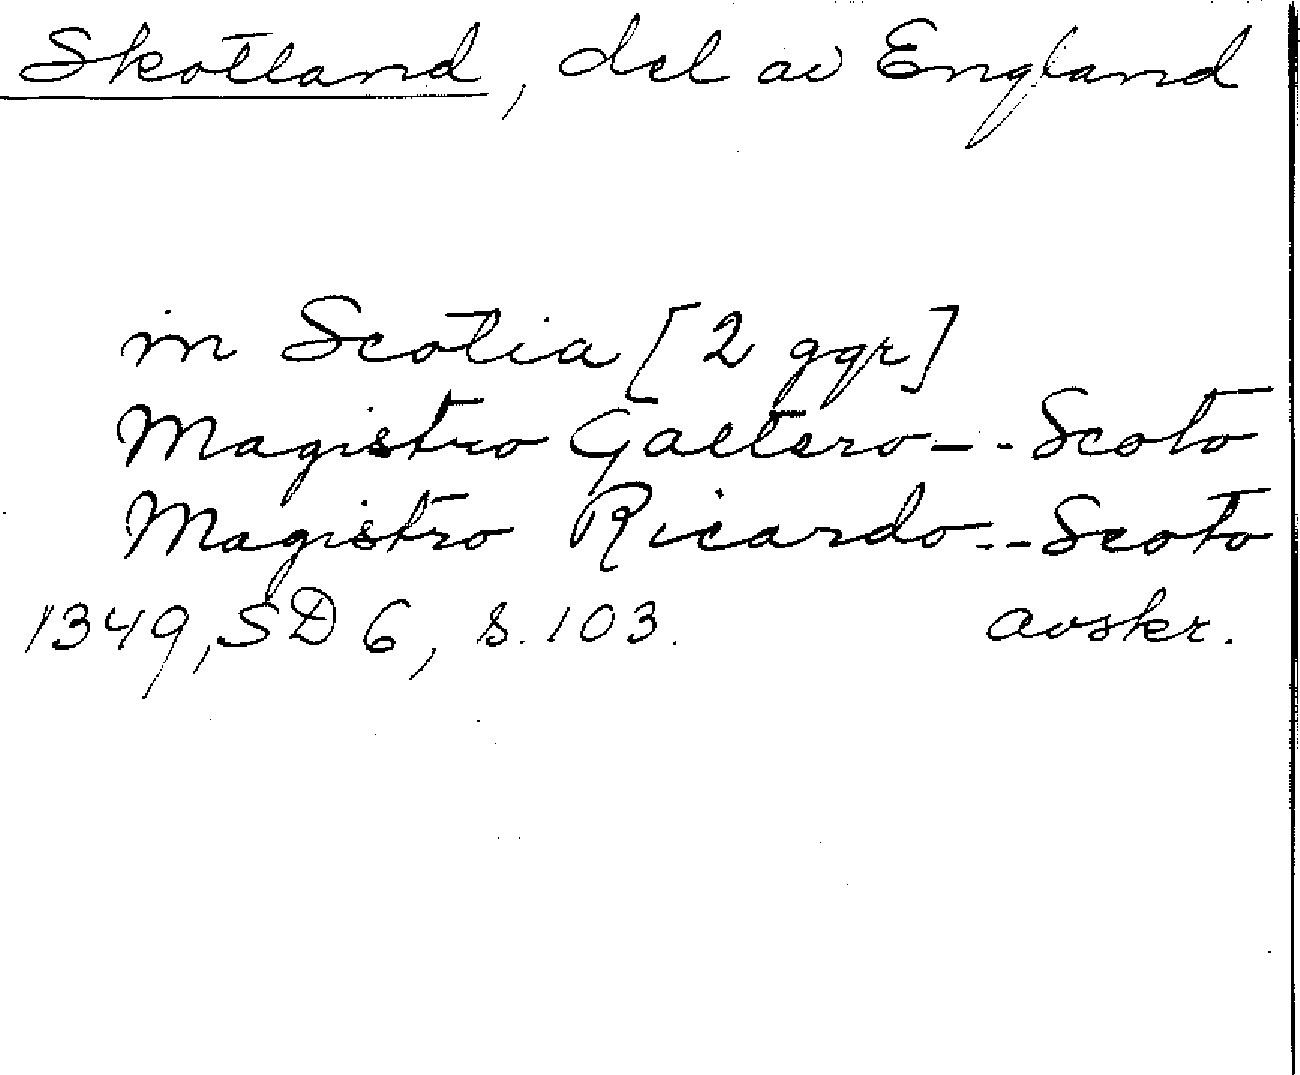 Skotland, del av England
in Scotia [2 ggr]
Magistro Galtero -- Scoto
Magistro Ricardo -- Scoto
1349, SD 6, s. 103. avskr.